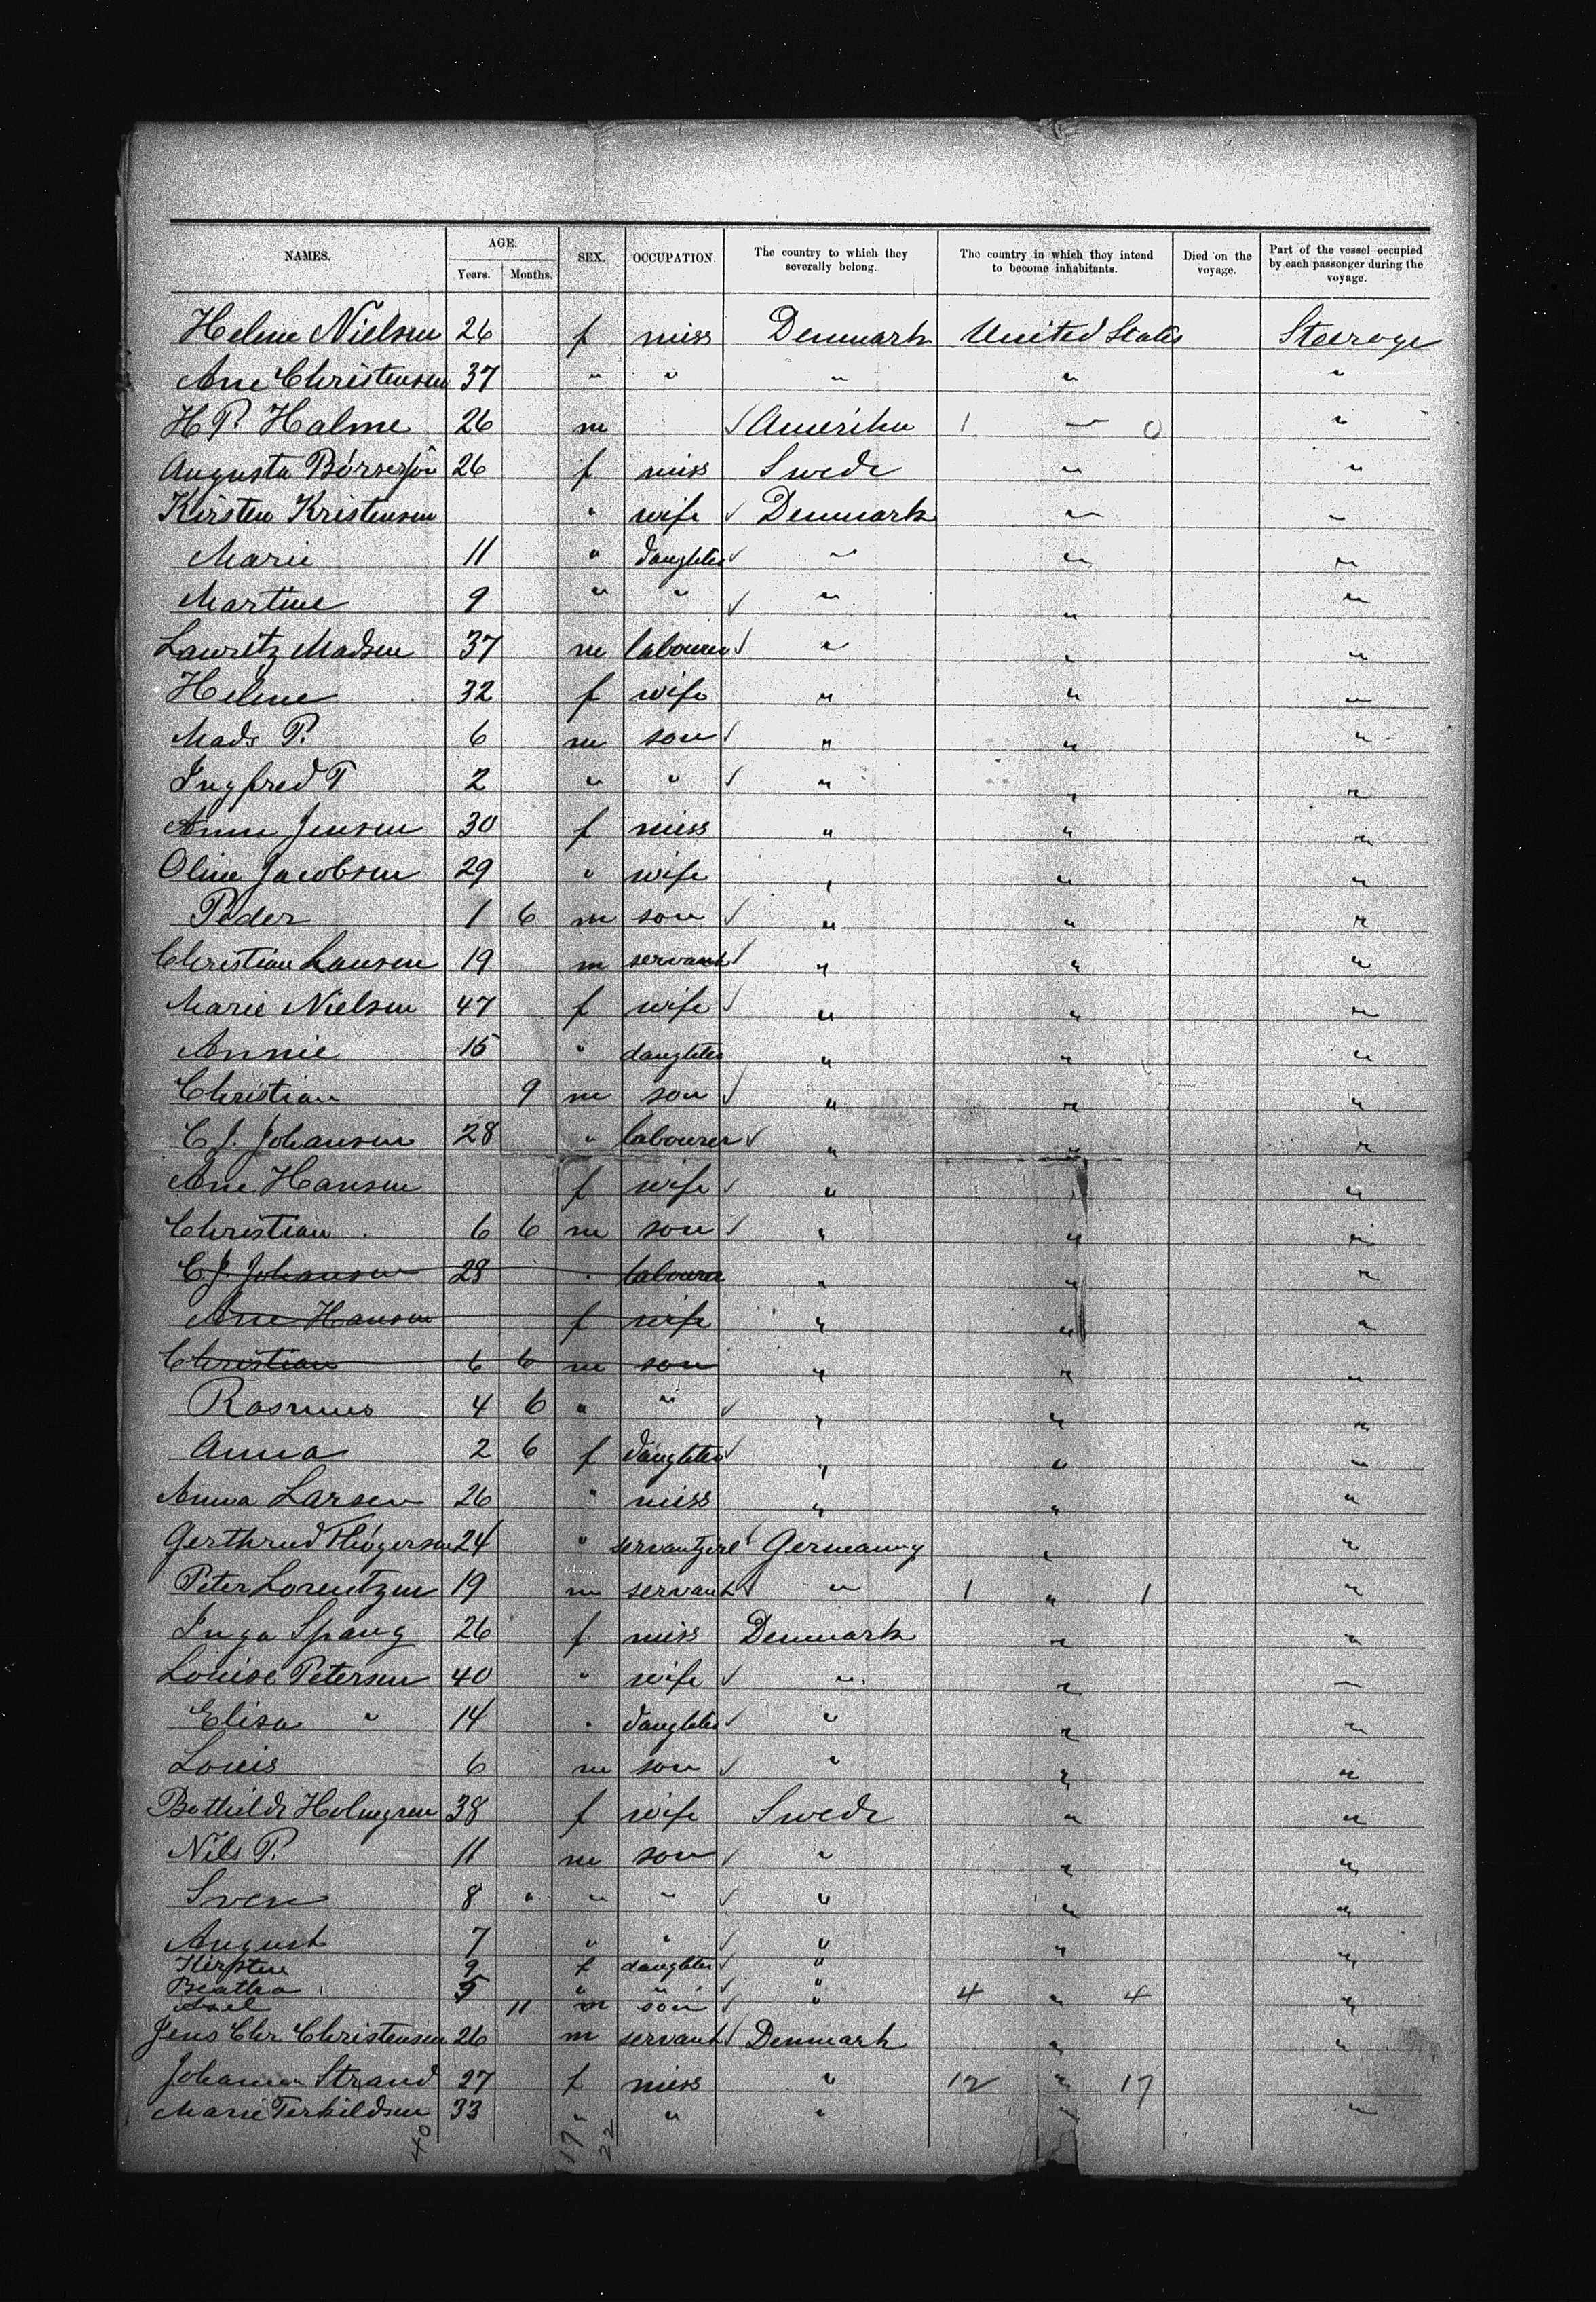 NAMES. AGE. SEX. OCCUPATION. The country to which they severally belong. The country in which they intend to become inhabitants. Died on the voyage. Part of the vessel occupied by each passenger during the voyage.
Years. Months.
Helene Nielsen 26 f miss Denmark United States Steerage
Ane Christensen 37 " " " " "
H P. Halme 26 m √ Amerika 1 " 0 "
Augusta Börresson 26 f miss Swede " "
Kirsten Kristensen " wife √ Denmark " "
Marie 11 " daughter √ " " "
Martine 9 " " √ " " "
Lauritz Madsen 37 m labourer √ " " "
Helene 32 f wife " " "
Mads P. 6 m son √ " " "
Ingfred T 2 " " √ " " "
Anne Jensen 30 f miss " " "
Oline Jacobsen 29 " wife " " "
Peder 1 6 m son √ " " "
Christian Lausen 19 m servant √ " " "
Marie Nielsen 47 f wife √ " " "
Annie 15 " daughter " " "
Christian 9 m son √ " " "
C J. Johansen 28 " labourer √ " " "
Ane Hansen f wife √ " " "
Christian 6 6 m son √ " " "
C J. Johansen 28 " labourer " " "
Ane Hansen f wife " " "
Christian 6 6 m son " " "
Rasmus 4 6 " " √ " " "
Anna 2 6 f daughter √ " " "
Anna Larsen 26 " miss " " "
Gerthrud Thögersen 24 " servantgirl √ Germany " "
Peter Lorentzen 19 m servant √ " 1 " 1 "
Inga Spang 26 f. miss Denmark " "
Louise Petersen 40 " wife √ " " "
Elisa " 14 " daughter √ " " "
Louis 6 m son √ " " "
Bothilde Holmgren 38 f wife Swede " "
Nils P. 11 m son √ " " "
Sven 8 " " " √ " " "
August 7 " " √ " " "
Kirstine 9 f daughter √ "
Beatha 5 " " √ "
Axel 11 m son √ " 4 " 4 "
Jens Chr Christensen 26 m servant √ Denmark " "
Johanne Strand 27 f miss " 12 " 17
Marie Terkildsen 33 " " " " "
40 17 22